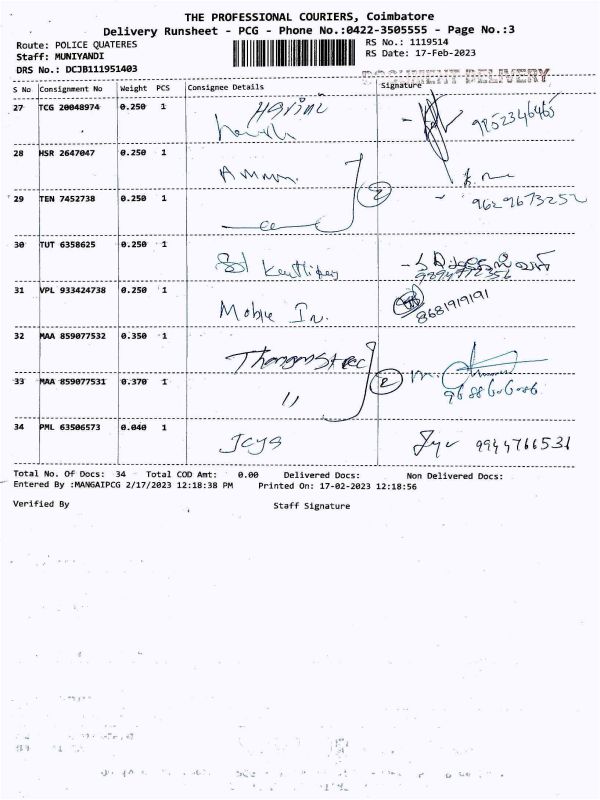 THE PROFESSIONAL COURIERS, Coimbatore
Delivery Runsheet - PCG - Phone No.:0422-3505555 - Page No.:3
Route: POLICE QUATERES
RS No.: 1119514
Staff: MUNIYANDI
RS Date: 17-Feb-2023
DRS No.: DCJB111951403
DOCUMENT DELIVERY
S No Consignment No Weight PCS Consignee Details Signature
27 TCG 20048974 0.250 1
9252346465
28 HSR 2647047 0.250 1
29 TEN 7452738 0.250 1 2
9629673252
30 TUT 6358625 0.250 1
31 VPL 933424738 0.250 1 Mobye In. 8681919191
32 MAA 859077532 0.350 1
33 MAA 859077531 0.370 1 〃 2
34 PML 63506573 0.040 1 9944766531
Total No. Of Docs: 34 Total COD Amt: 0.00 Delivered Docs: Non Delivered Docs:
Entered By :MANGAIPCG 2/17/2023 12:18:38 PM Printed On: 17-02-2023 12:18:56
Verified By Staff Signature